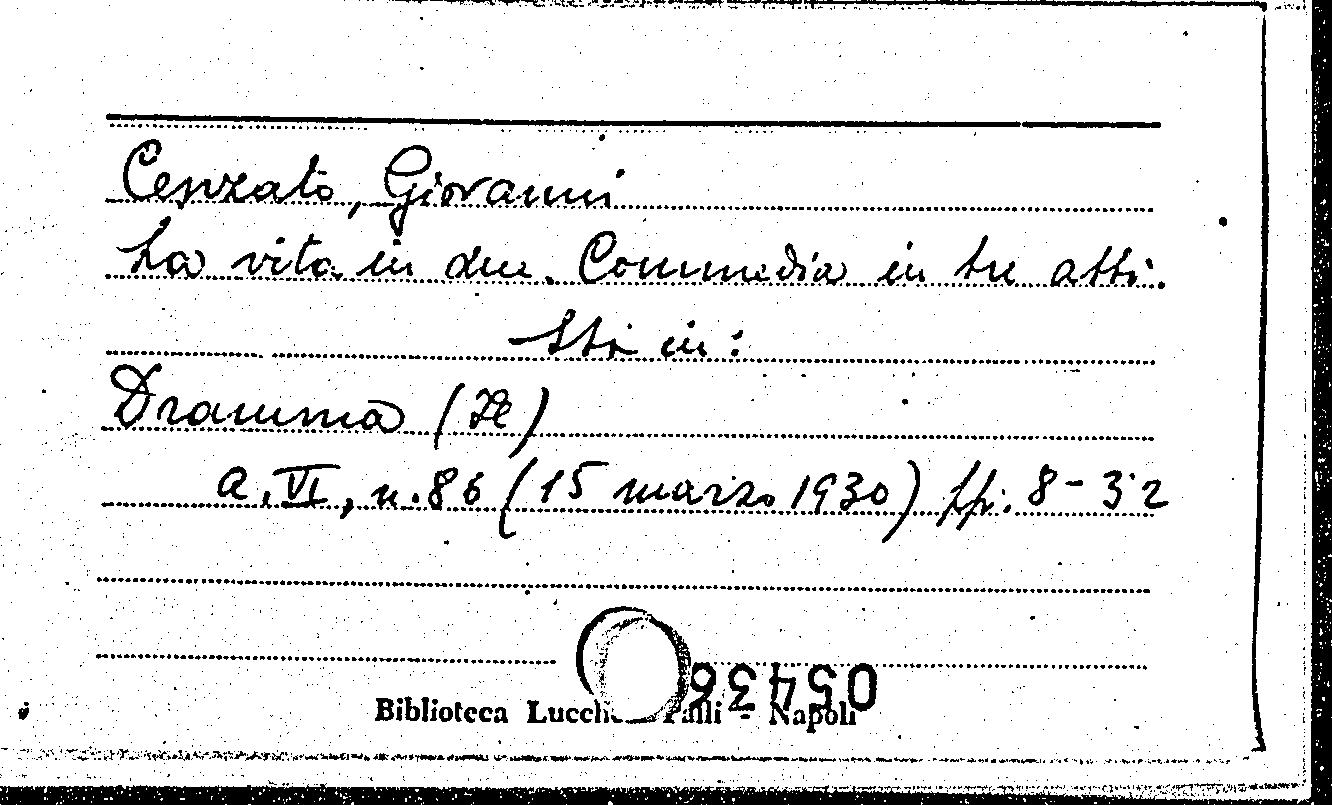 Cenzato, Giovanni
La vita in due. Commedia in tre atti.
Sta in:
Dramma (Il)
a. VI, n. 86 (15 marzo 1930) pp. 8-32
Biblioteca Lucche Palli - Napoli